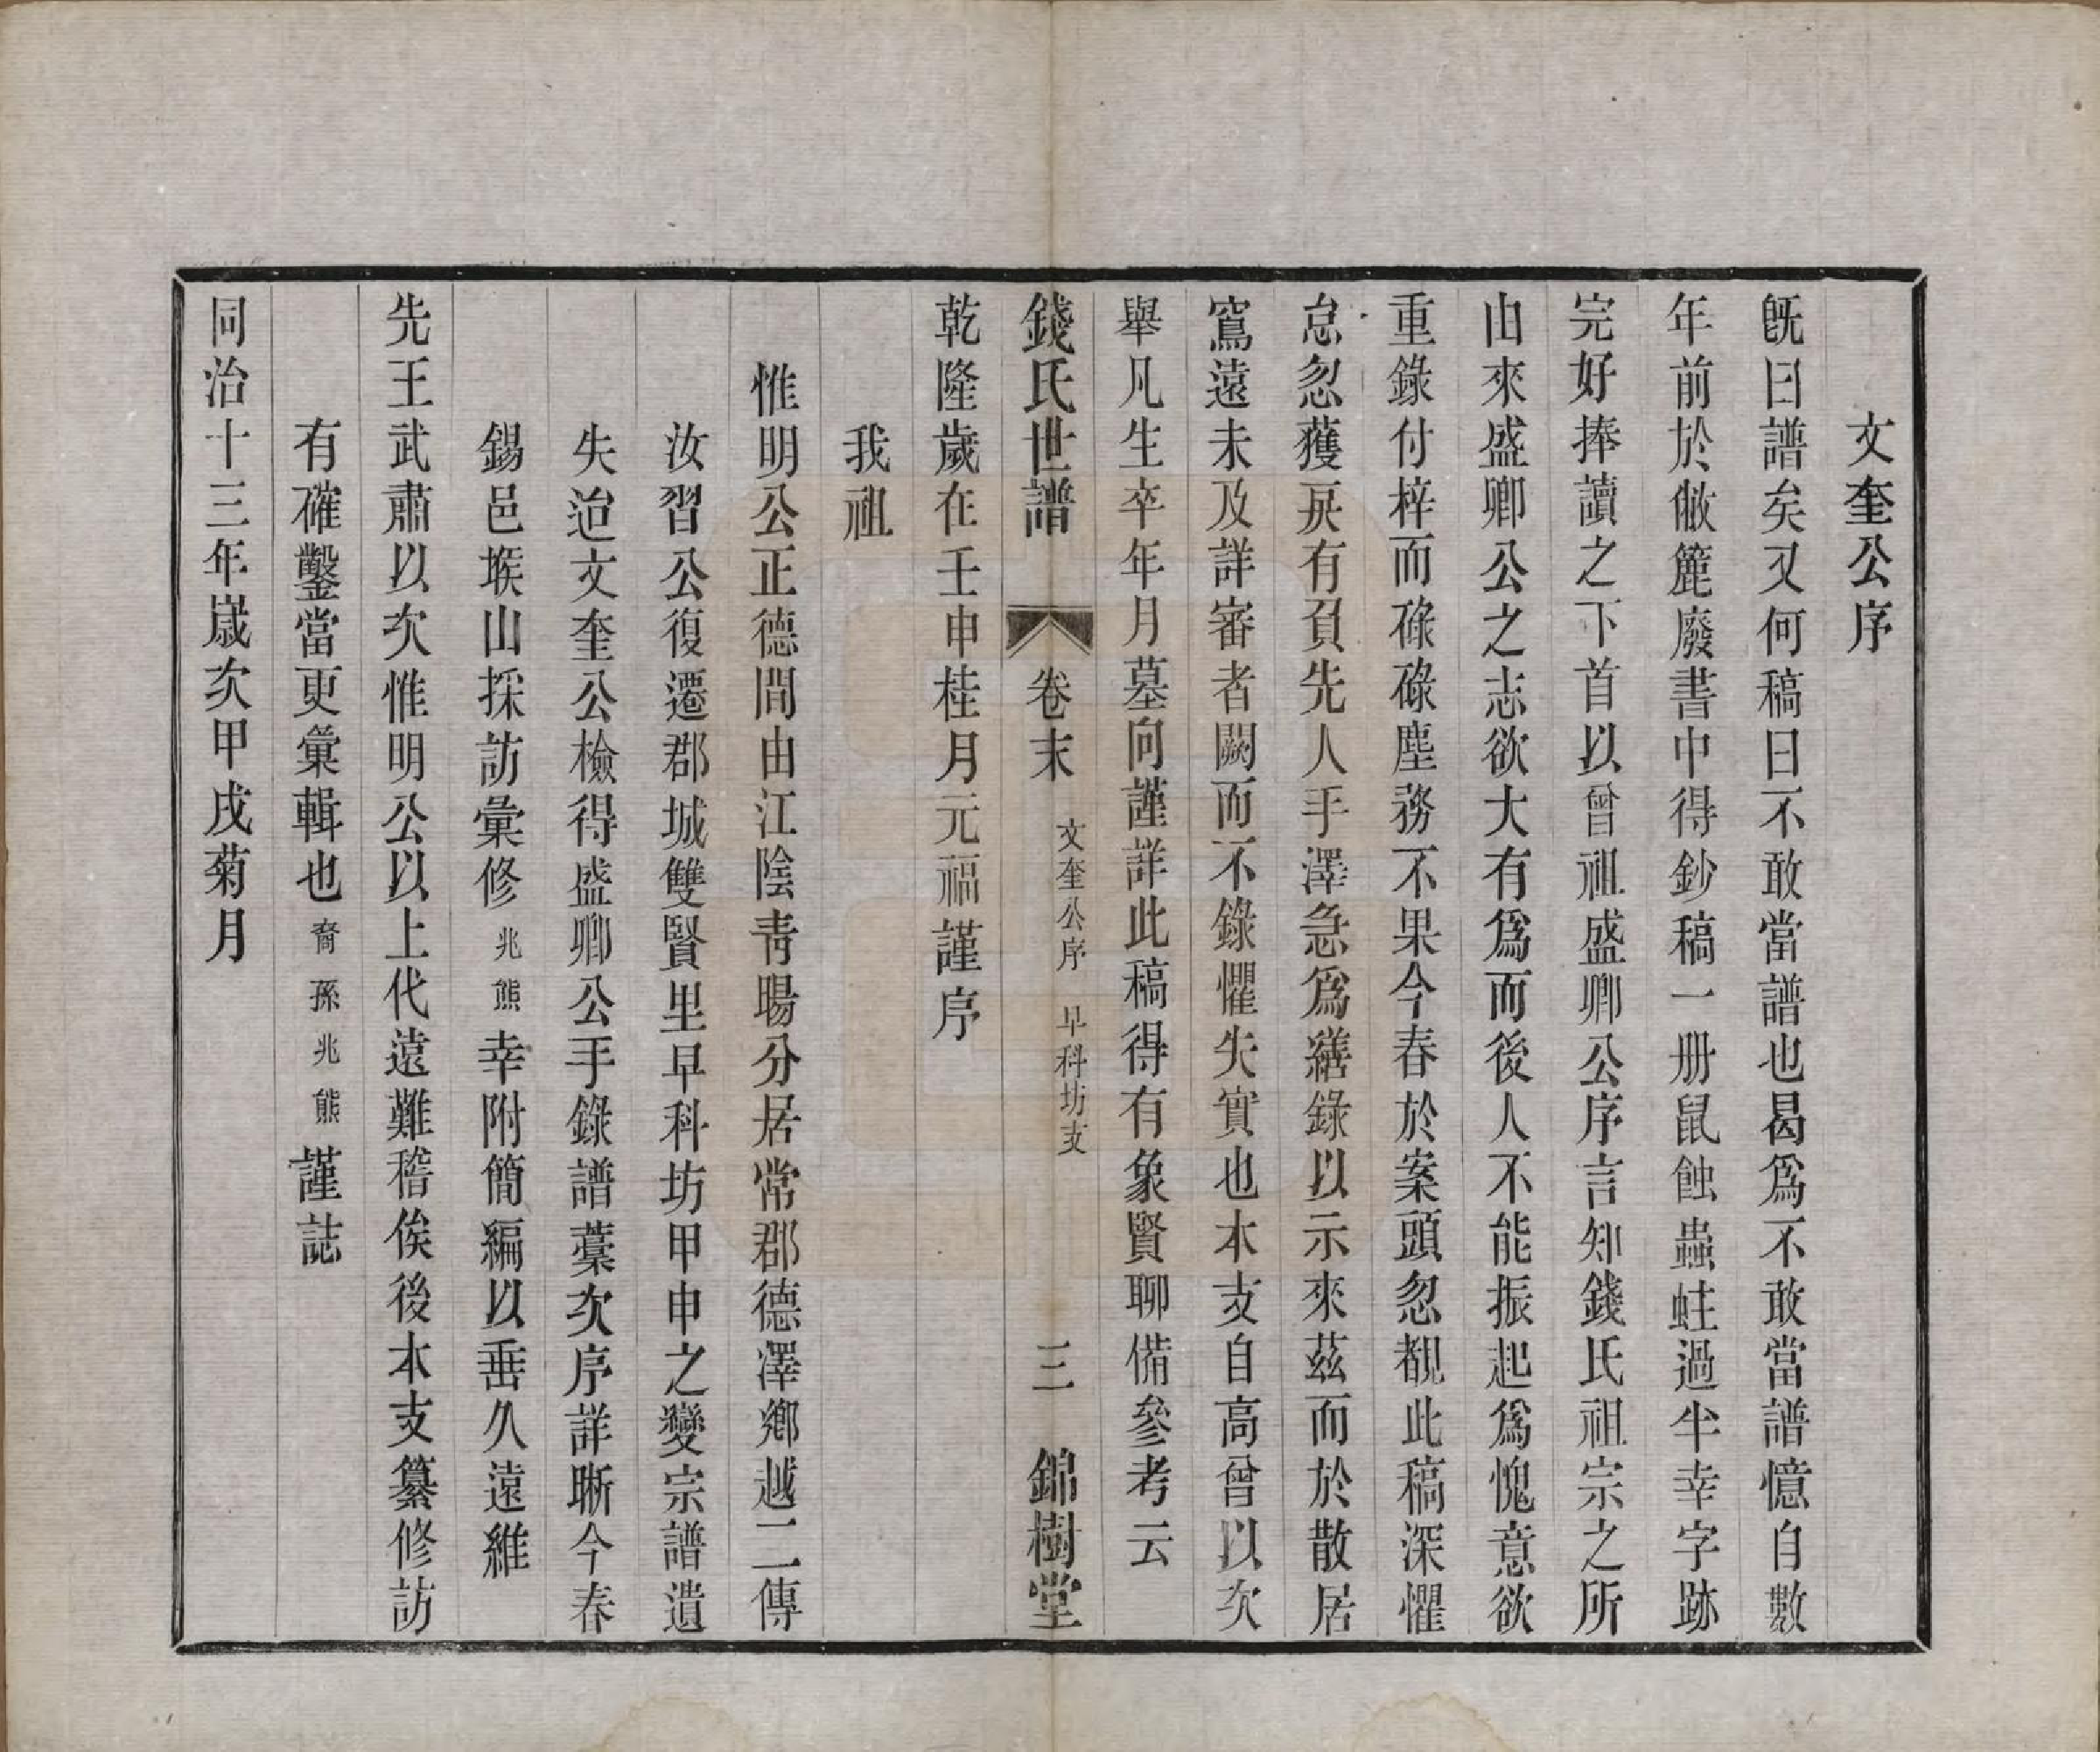 文奎公序
旣曰譜矣又何稿曰不敢當譜也曷爲不敢當譜憶自數
年前於敝簏廢書中得鈔稿一册鼠蝕蟲蛀過半幸字跡
完好捧讀之下首以曾祖盛卿公序言知錢氏祖宗之所
由來盛卿公之志欲大有爲而後人不能振起爲愧意欲
重錄付梓而碌碌塵務不果今春於案頭忽覩此稿深懼
怠忽獲戾有負先人手澤急爲繕錄以示來茲而於散居
窵遠未及詳審者闕而不錄懼失實也本支自高曾以次
舉凡生卒年月墓向謹詳此稿得有象賢聊備參考云
錢氏世譜 卷末 文奎公序 早科坊支 三 錦樹堂
乾隆歲在壬申桂月元福謹序
我祖
惟明公正德間由江陰青暘分居常郡德澤鄉越二傳
汝習公復遷郡城雙賢里早科坊甲申之變宗譜遺
失迨文奎公檢得盛卿公手錄譜藁次序詳晰今春
錫邑堠山採訪彙修兆熊幸附簡編以垂久遠維
先王武肅以次惟明公以上代遠難稽俟後本支纂修訪
有確鑿當更彙輯也裔孫兆熊謹誌
同治十三年歲次甲戌菊月